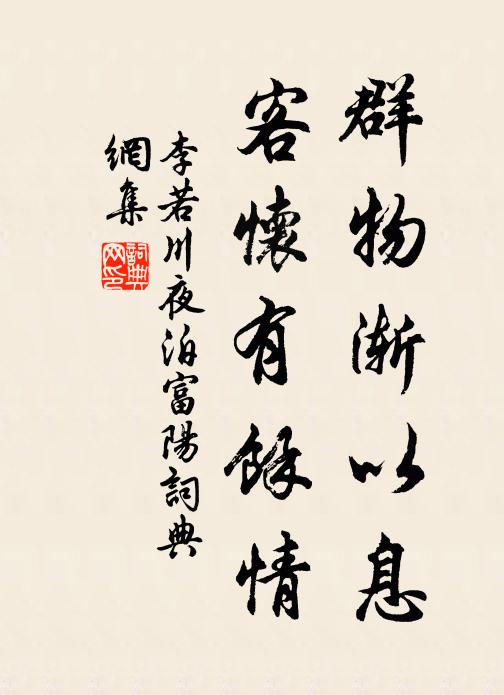 群物渐以息
客懷有餘情
李若川夜泊富陽詞典
網集
詞典
网印